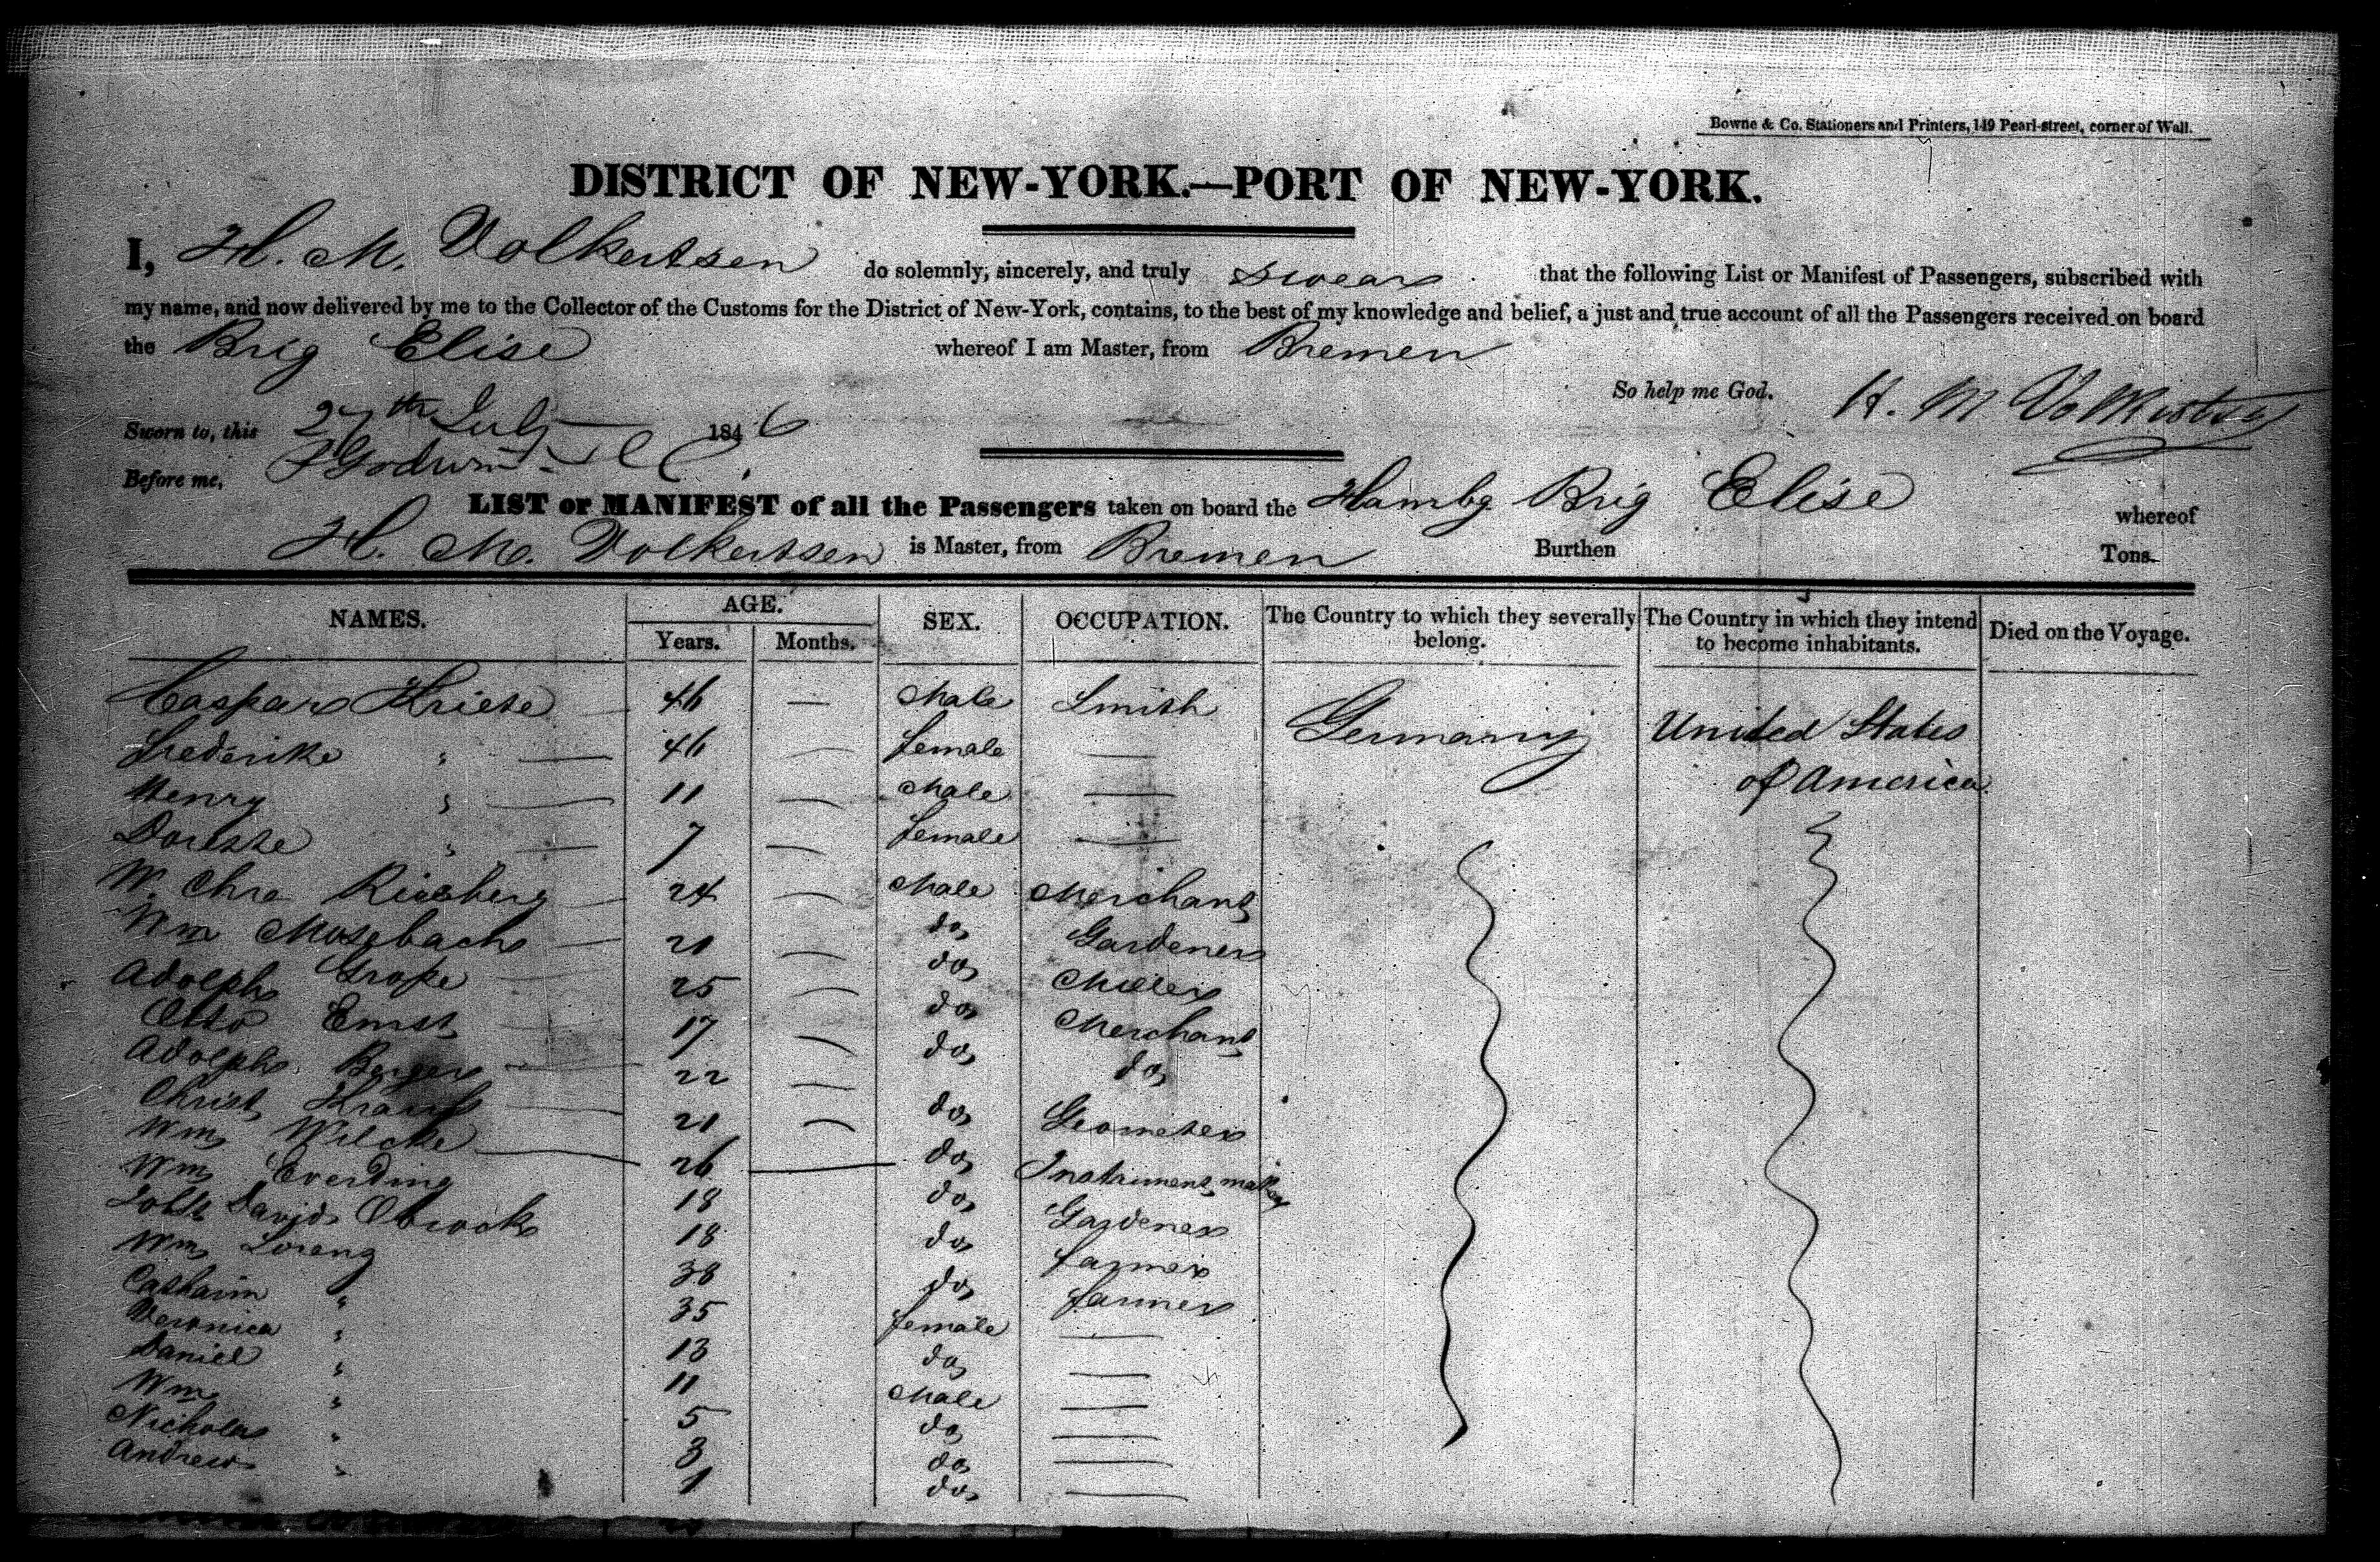 Bowne & Co. Stationers and Printers, 149 Pearl-street, corner of Wall.
DISTRICT OF NEW-YORK.—PORT OF NEW-YORK.
I, H. M. Volkertsen do solemnly, sincerely, and truly swear that the following List or Manifest of Passengers, subscribed with
my name, and now delivered by me to the Collector of the Customs for the District of New-York, contains, to the best of my knowledge and belief, a just and true account of all the Passengers received on board
the Brig Elise whereof I am Master, from Bremen
So help me God. H. M. Volkertsen
Sworn to, this 27th July 1846
Before me,
LIST or MANIFEST of all the Passengers taken on board the Hambg Brig Elise whereof
H. M. Volkertsen is Master, from Bremen Burthen Tons.
NAMES. AGE. SEX. OCCUPATION. The Country to which they severally belong. The Country in which they intend to become inhabitants. Died on the Voyage.
Years. Months.
Caspar Kriete 46 — Male Smith Germany United States
Frederike " — 46 — female — of America
Henry " — 11 — Male —
Dorette " — 7 — female —
W. Chr. — 24 — Male Merchant
Wm Mosebach — 20 — do Gardener
Adolph Grope — 25 — do Miller
Otto Ernst — 17 — do Merchant
Adolph Berger — 22 — do do
Christ Krauss — 21 — do Geometer
Wm Wilcke — 26 — do Instrument maker
Wm Everding 18 do Gardener
David Obrock 18 do farmer
Wm Lorenz 38 do farmer
Catharin " 35 female —
Veronica " 13 do —
Daniel " 11 Male —
Wm " 5 do —
Nicholas " 3 do —
Andrew " 1 do —